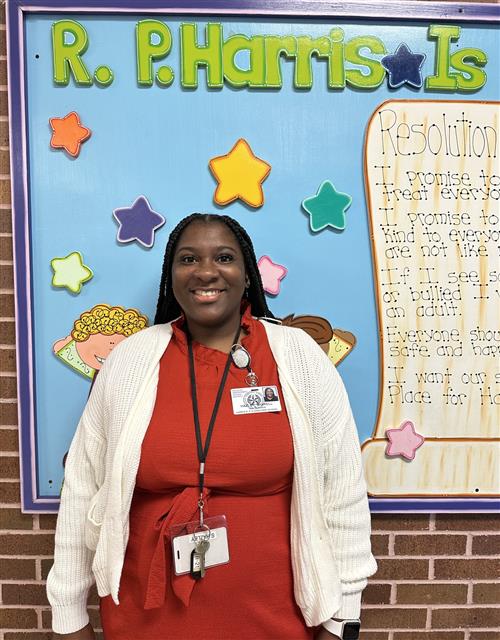 R. P. Harris Is
Resolution
I promise to
Treat everyo
I promise to
Kind to everyo
are not like
If I see so
or bullied I
an adult.
Everyone shou
safe and har
I want our s
Place for Ha